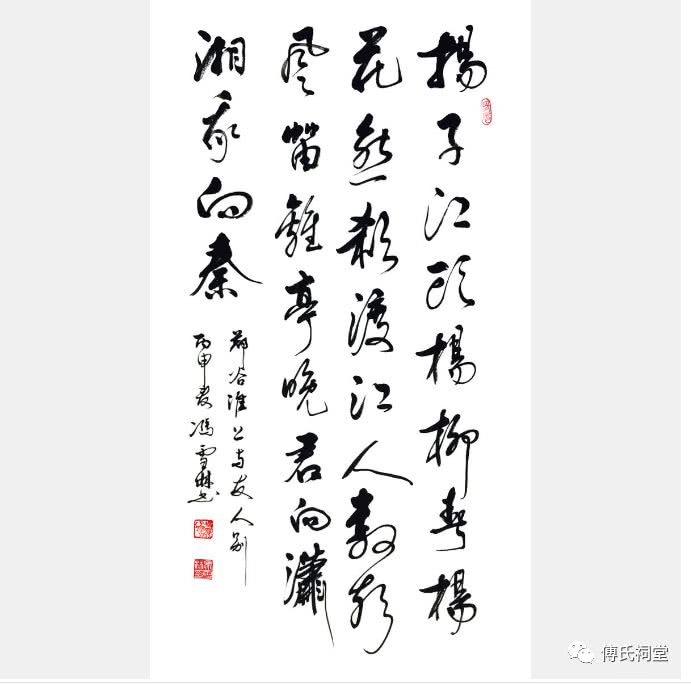 揚子江頭楊柳春楊
花愁殺渡江人數聲
風笛離亭晚君向瀟
湘我向秦
鄭谷淮上与友人别
丙申夏馮雪
傅氏祠堂